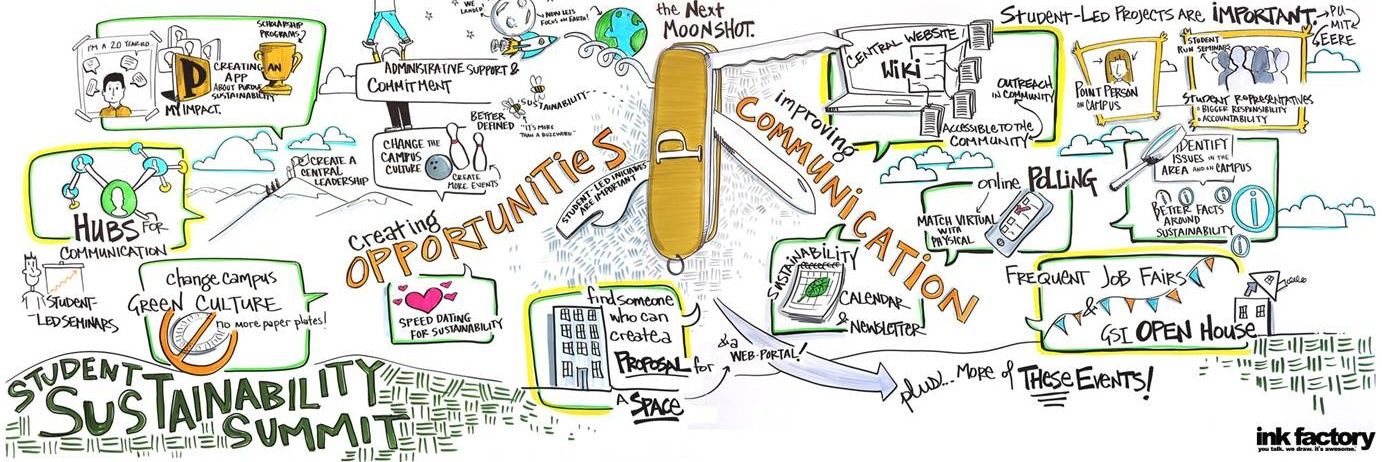 SCHOLARSHIP
PROGRAMS
I'M A 20 YEAR OLD
P
CREATING AN
APP
ABOUT PURDUE
SUSTAINABILITY
MY IMPACT.
WE
LANDED
NOW LET'S
FOCUS ON EARTH!
the Next
MOONSHOT.
ADMINISTRATIVE SUPPORT &
COMMITMENT
"SUSTAINABILITY"
BETTER
DEFINED
"IT'S MORE
THAN A BUZZWORD"
CHANGE THE
CAMPUS
CULTURE
CREATE
MORE EVENTS
CREATE A
CENTRAL
LEADERSHIP
HUBS FOR
COMMUNICATION
STUDENT
-LED SEMINARS
Change campus
GREEN CULTURE
no more paper plates!
creating
OPPORTUNITIES
STUDENT-LED INICIATIVES
ARE IMPORTANT
P
SPEED DATING
FOR SUSTAINABILITY
find someone
who can
create a
PROPOSAL for
A SPACE
& a
WEB-PORTAL!
STUDENT
SUSTAINABILITY
SUMMIT
improving
COMMUNICATION
CENTRAL WEBSITE/
WiKi
OUTREACH
IN COMMUNITY
ACCESSIBLE TO THE
COMMUNITY
STUDENT-LED PROJECTS ARE IMPORTANT.
PU-
MIT
EERE
POINT PERSON
ON CAMPUS
STUDENT
RUN SEMINARS
STUDENT REPRESENTATIVES
BIGGER RESPONSIBILITY
ACCOUNTABILITY
IDENTIFY
ISSUES IN THE
AREA AND ON CAMPUS
BETTER FACTS
AROUND
SUSTAINABILITY
i
i
i
i
online POLLING
MATCH VIRTUAL
WITH
PHYSICAL
SUSTAINABILITY
CALENDAR
& NEWSLETTER
FREQUENT JOB FAIRS
&
GSI OPEN HOUSE
plus... MORE of THESE EVENTS!
ink factory
you talk. we draw. it's awesome.